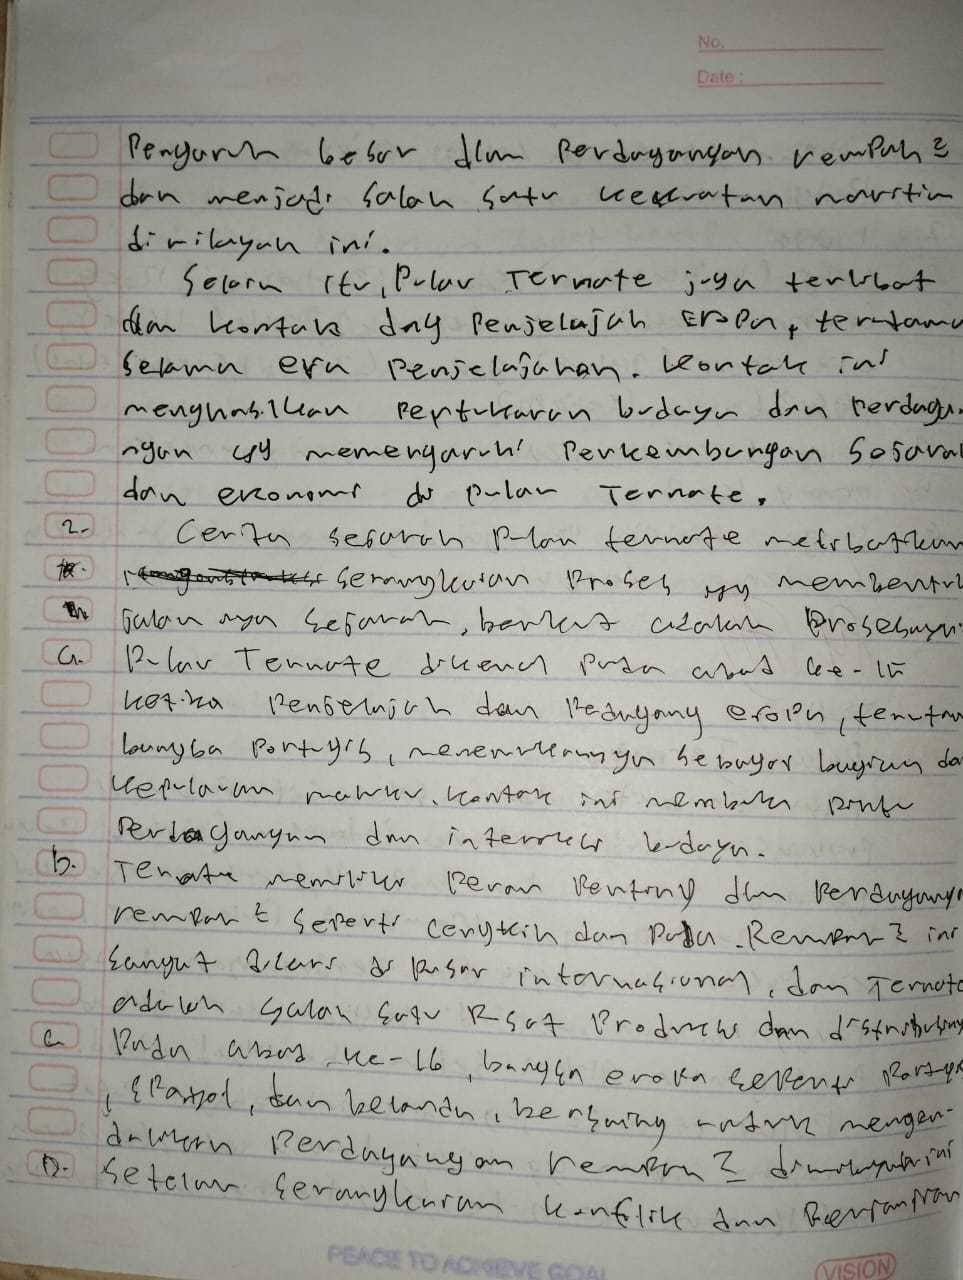 No.
Date :
Pengaruh besar dlm perdagangan rempah2
dan menjadi salah satu kekuatan maritim
diwilayah ini.
Selain itu, Pulau Ternate juga terlibat
dlm kontak dng Penjelajah Eropa, terutama
selama era Penjelajahan. Kontak ini
menghasilkan Pertukaran budaya dan Perdaga-
ngan yg memengaruhi Perkembangan Sejarah
dan ekonomi di pulau Ternate.
2. Cerita sejarah Pulau ternate melibatkan
serangkaian Proses yg membentuk
jalan nya sejarah, berikut adalah Prosesnya:
a. Pulau Ternate dikenal Pada abad ke-15
ketika Penjelajah dan Pedagang eropa, terutama
bangsa Portugis, menemukannya sebagai bagian da
kepulauan maluku. Kontak ini membuka pintu
Perdagangan dan interaksi budaya.
b. Ternate memiliki Peran Penting dlm Perdagang
rempah2 seperti cengkeh dan Pala. Rempah2 ini
sangat dicari di Pasar internasional, dan Ternate
adalah salah satu Pusat Produksi dan distribusiny
c. Pada abad ke-16, bangsa eropa seperti Portugis
, SPanyol, dan belanda, bersaing untuk mengen-
dalikan Perdagangan rempah2 diwilayah ini
D. Setelah serangkaian konflik dan Perjanjian
PEACE TO ACHIEVE GOAL
VISION